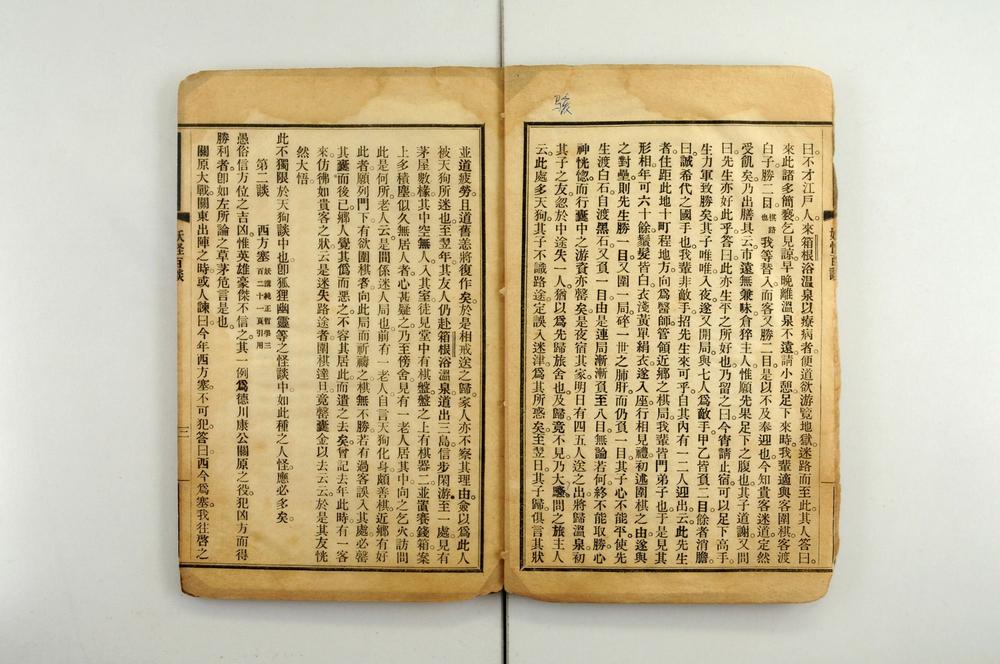 曰。不才江戶人。來箱根浴溫泉以療病者。便道欲游覽地獄。迷路而至此。其人答曰。
來此諸多簡褻。乞見諒。早晚離溫泉不遠。請小憩足下來時。我輩適與客圍棋。客渡
白子勝二目。棋路也我等替入而客又勝二目。是以不及奉迎也。今知貴客迷道定然
受飢矣。乃出膳具云。市遠無兼味。倉猝主人惟願先果足下之腹也。其子道謝。又問
曰。先生亦好此乎。答曰。此亦生平之所好也。乃留之曰。今宵請止宿。可以足下高手。
生力軍致勝矣。其子唯唯。入夜遂又開局。與七人爲敵手。甲乙皆負二目。餘者消膽。
曰。誠希代之國手也。我輩非敵手。招先生來可乎。自其內有一二人迎出云。此先生
者。住距此地十町程。地方向爲醫師。管領近鄉之棋局。我輩皆門弟子也。于是見其
形相。年可六十餘。鬚髮皆白。衣淺黃單絹衣。遂入座行相見禮。初述圍棋之由。遂與
之對壘。則先生勝一目。又圍一局。碎一世之肺肝而仍負一目。其子心不能平。使先
生渡白石。自渡黑石。又負一目。由是連局漸漸負至八目。無論若何終不能取勝。心
神恍惚。而行囊中之游資亦罄矣。是夜宿其家。明日有四五人送之出。將歸溫泉。初
其子之友忽於中途失一人。猶以爲先歸旅舍也。及歸竟不見。乃大驚。問之旅主人
云。此處多天狗。其子不識路途。定誤入迷津。爲其所惑矣。至翌日其子歸。俱言其狀
並道疲勞。且道舊恙將復作矣。於是相戒送之歸。家人亦不察其理由。僉以爲此人
被天狗所迷也。至翌年其友人仍赴箱根浴溫泉。道出三島。信步閑游。至一處。見有
茅屋數椽。其中空無人。入其室徒見堂中有棋盤。盤之上有棋器二。並置賽錢箱。案
上多積塵。似久無居人者。心甚疑之。乃至傍舍。見有一老人居其中。向之乞火。訪問
此是何所。老人云。是間係迷人局也。前有一老人。自言天狗化身。頗善棋。近鄉有好
此者。願列門下。有欲圍棋者。向此局而祈禱之。棋無不勝。若有過客誤入其處。必罄
其囊而後已。鄉人覺其僞而惡之。不容其居此而遣之去矣。曾記去年此時有一客
來。仿彿如貴客之狀云。是迷失路途者。圍棋達旦。竟罄囊金以去云云。於是其友恍
然大悟。
此不獨限於天狗談中也。卽狐狸幽靈等之怪談中。如此種之人怪應必多矣。
第二談 西方塞 妖講純正哲學三百二十一頁引用
愚俗信方位之吉凶。惟英雄豪傑不信之。其一例爲德川康公關原之役。犯凶方而得
勝利者。卽如左所論之草茅危言是也。
關原大戰。關東出陣之時。或人諫曰。今年西方塞。不可犯。答曰。西今爲塞。我往啓之
妖怪百談
三